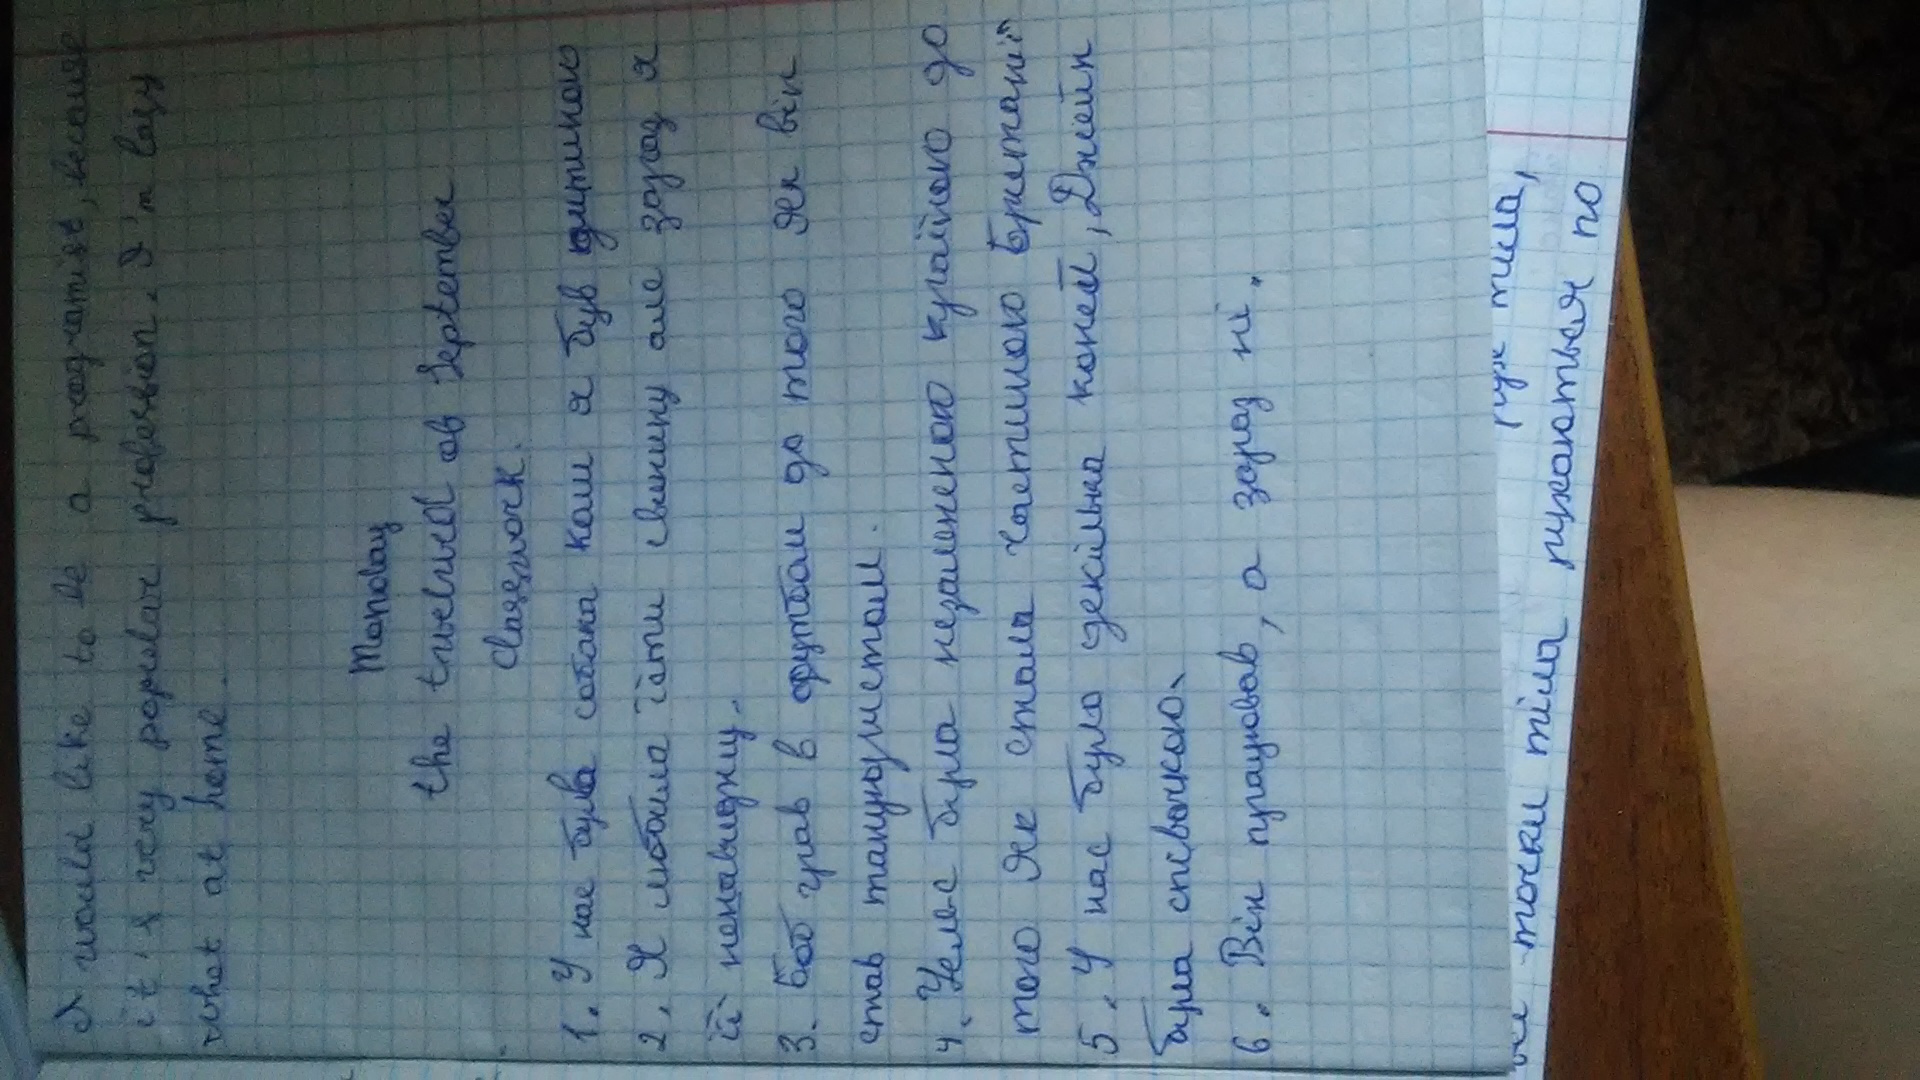 I would like to be a programist, because
it's very popular profession. I'm lazy
what at home.
Monday
the twelwed ob September
Classwork.
1. У нас була собака коли я був дитиною
2. Я любила їсти свинину але зараз я
її ненавиджу.
3. Боб грав в футбол до того як він
став танцюристом.
4. Уельс була незалежною країною до
того як стала частиною Британії
5. У нас було декілька коней, Джейн
була співачкою.
6. Він працював, а зараз ні.
рух тіла,
точки тіла рухаються по